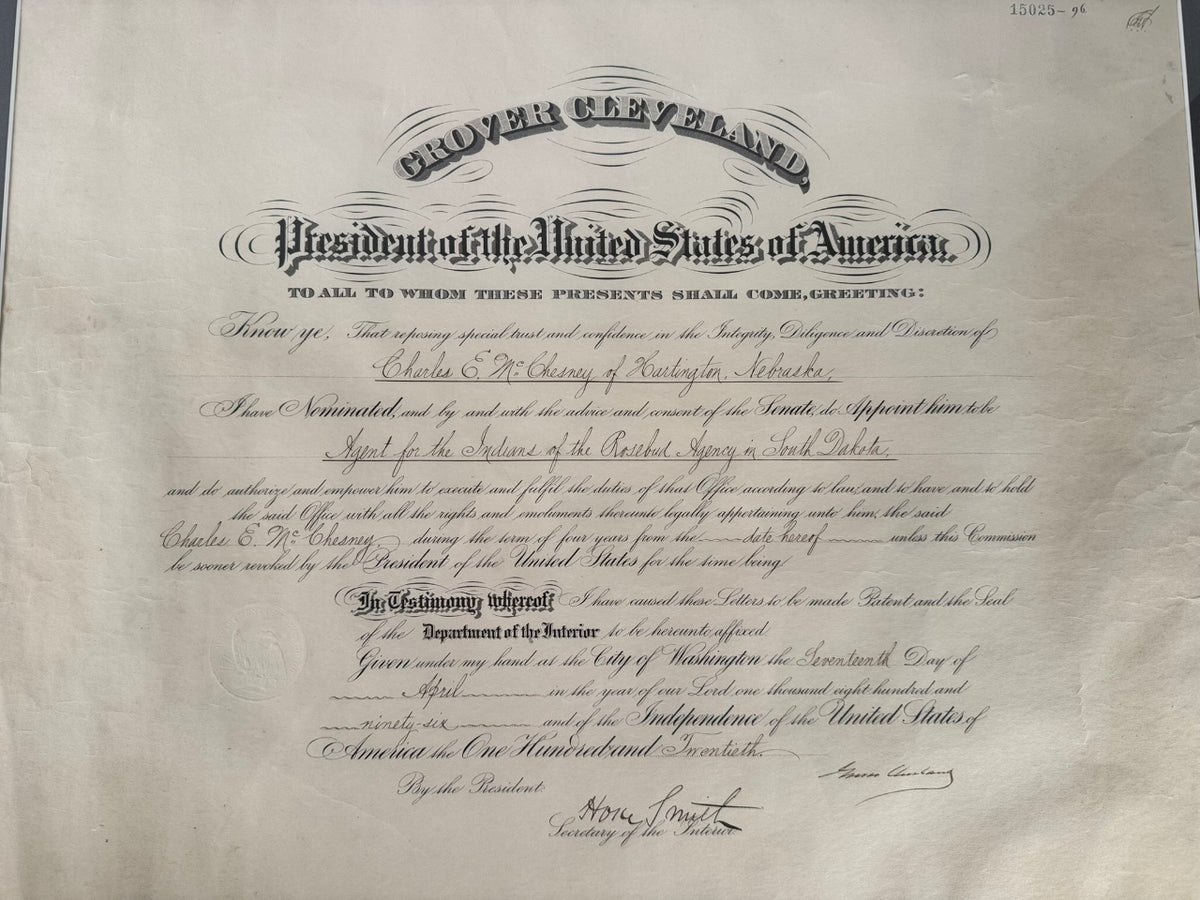 15025-96
GROVER CLEVELAND,
President of the United States of America.
TO ALL TO WHOM THESE PRESENTS SHALL COME, GREETING:
Know ye, That reposing special trust and confidence in the Integrity, Diligence and Discretion of
Charles E. McChesney of Hartington, Nebraska,
I have Nominated, and by and with the advice and consent of the Senate, do Appoint him to be
Agent for the Indians of the Rosebud Agency in South Dakota,
and do authorize and empower him to execute and fulfil the duties of that Office according to law, and to have and to hold
the said Office with all the rights and emoluments thereunto legally appertaining unto him, the said
Charles E. McChesney, during the term of four years from the date hereof unless this Commission
be sooner revoked by the President of the United States for the time being.
In Testimony whereof I have caused these Letters to be made Patent and the Seal
of the Department of the Interior to be hereunto affixed.
Given under my hand at the City of Washington the Seventeenth Day of
April in the year of our Lord one thousand eight hundred and
ninety-six and of the Independence of the United States of
America the One Hundred and Twentieth.
Grover Cleveland
By the President:
Hoke Smith
Secretary of the Interior.